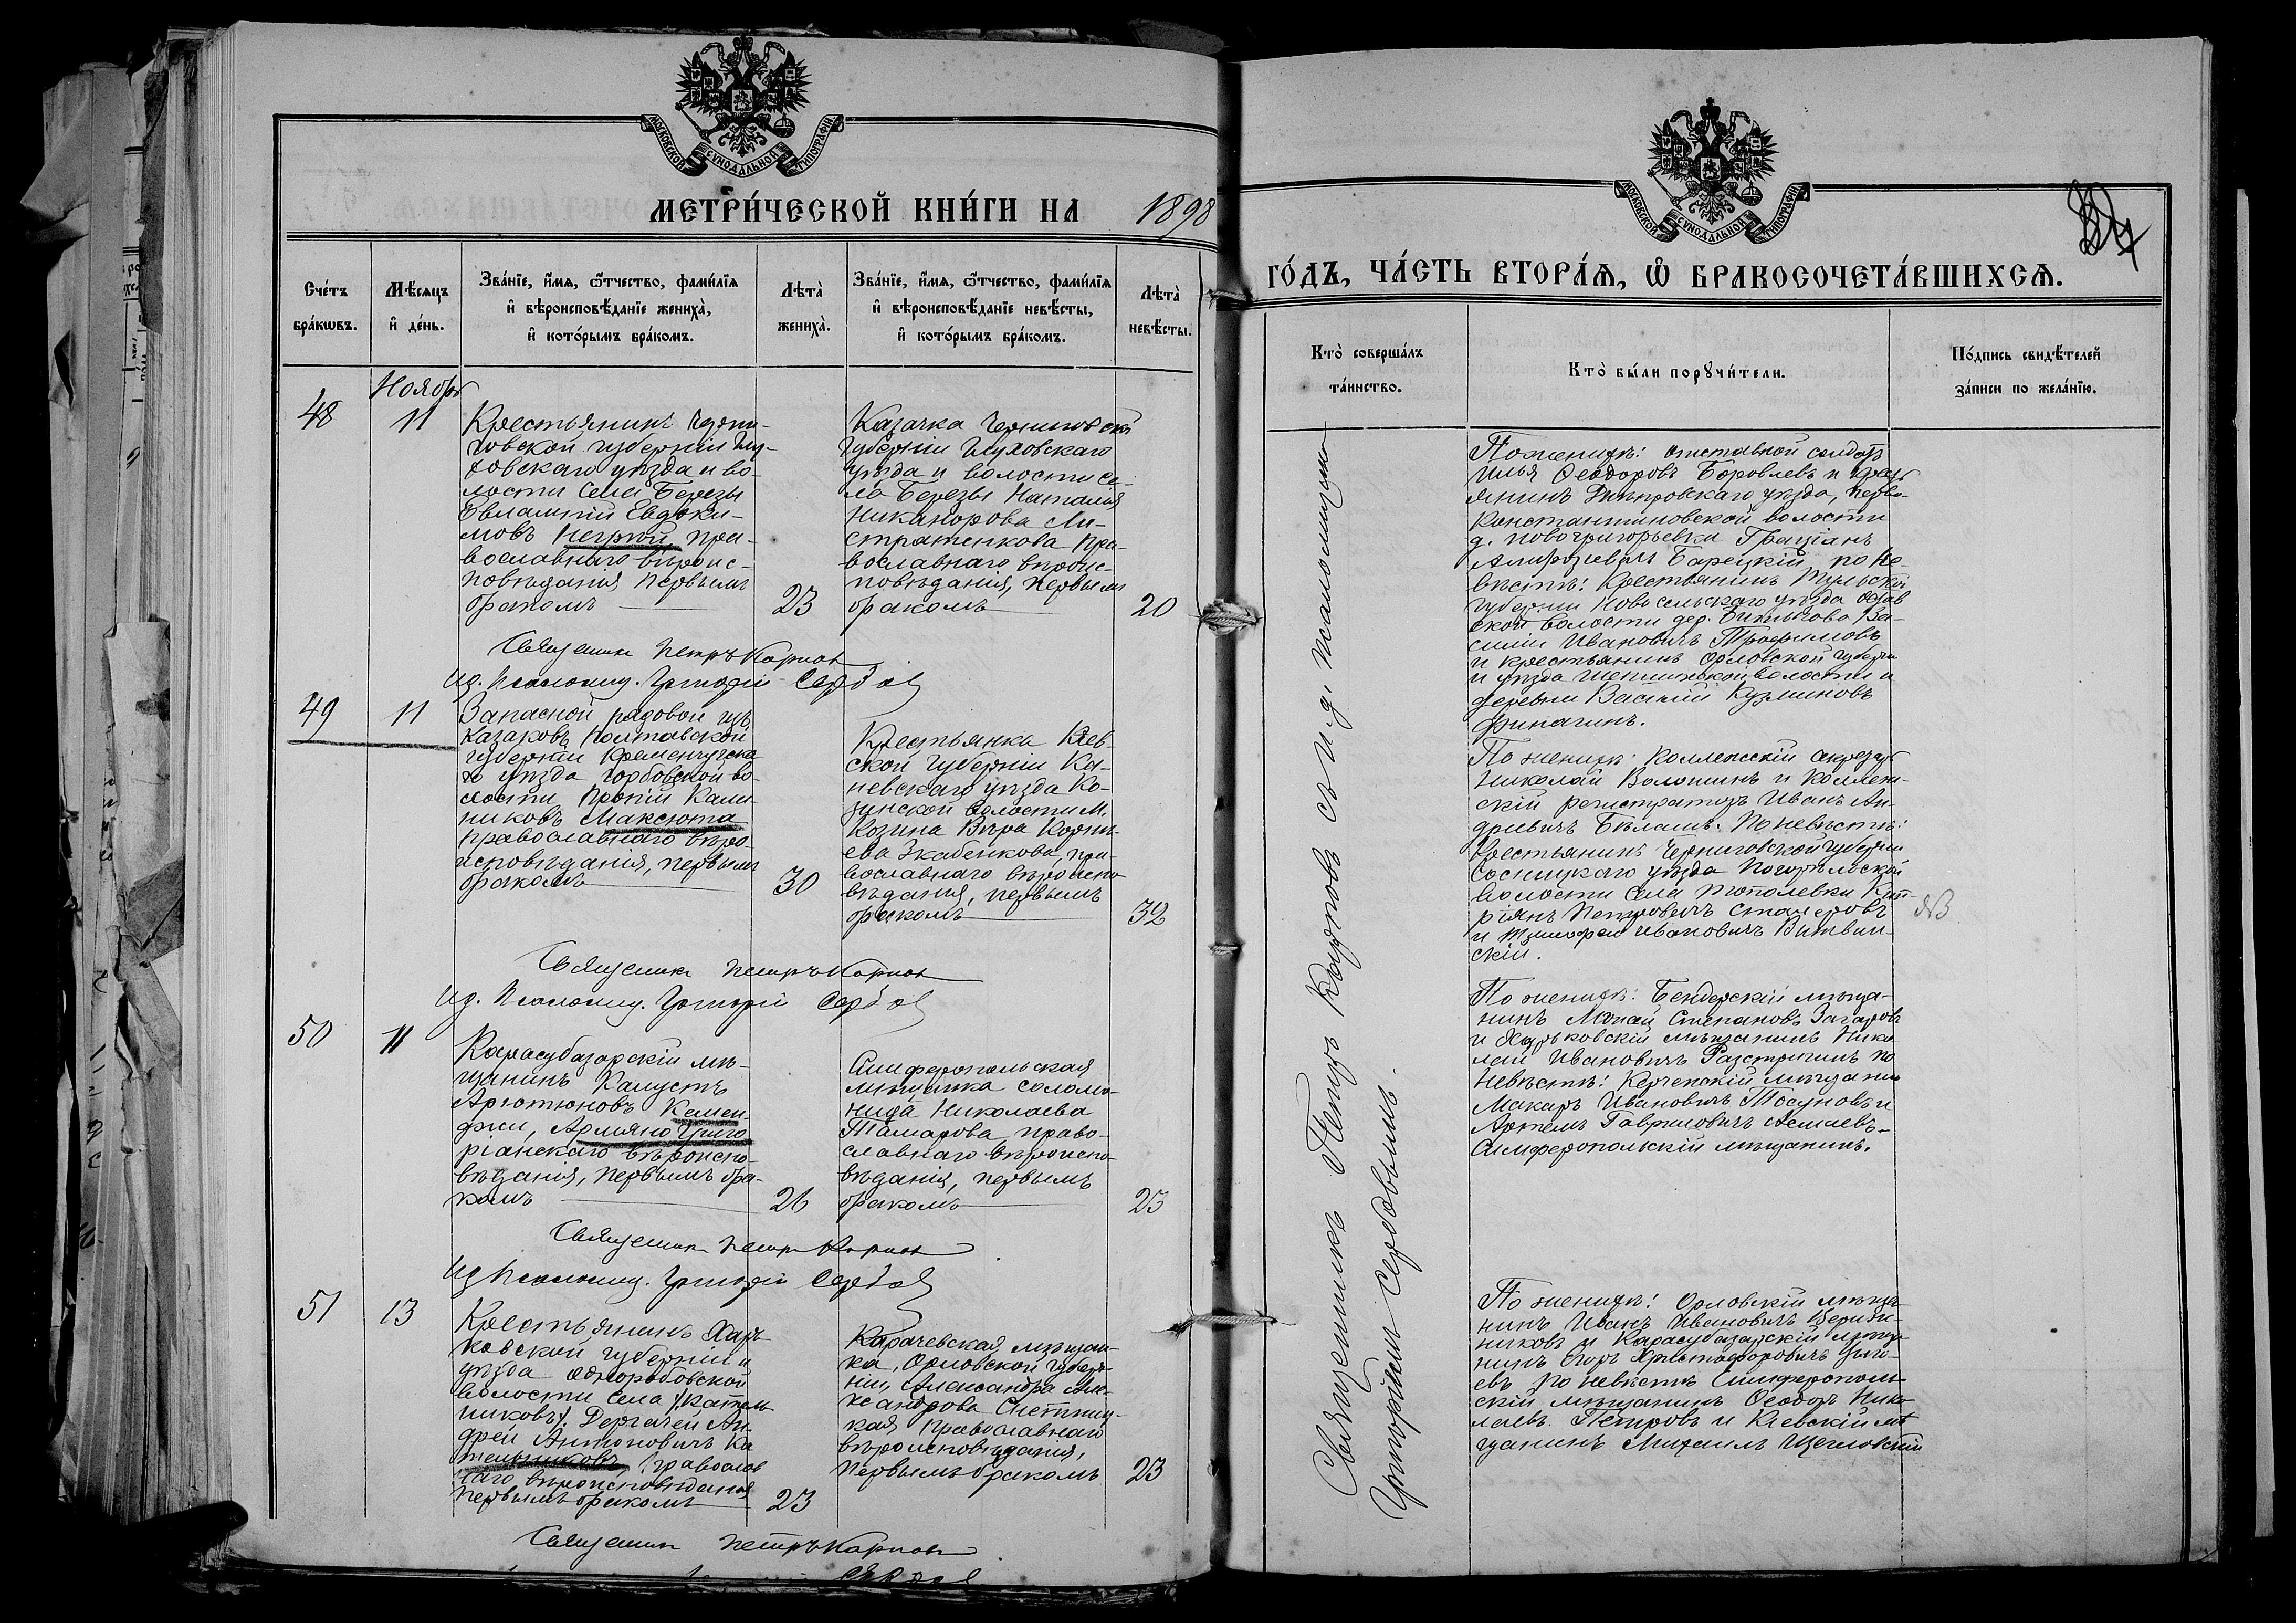 МОСКОВСКОЙ СѴНОДАЛЬНОЙ ТИПОГРАФІИ
МЕТРИ́ЧЕСКОЙ КНИ́ГИ НА 1898
Сче́тъ бра́кѡвъ.
Мѣ́сяцъ и҆ де́нь.
Зва́нїе, и҆́мя, ѻ҆́тчество, фами́лїя
и҆ вѣроисповѣ́данїе жениха̀,
и҆ кото́рымъ бра́комъ.
Лѣта̀ жениха̀.
Зва́нїе, и҆́мя, ѻ҆́тчество, фами́лїя
и҆ вѣроисповѣ́данїе невѣ́сты,
и҆ кото́рымъ бра́комъ.
Лѣта̀ невѣ́сты.
Ноябрь
48
11
Крестьянинъ Черни-
говской губерніи Глу-
ховскаго уѣзда и во-
лости села Березы
Евлампій Евдоки-
мовъ Негрой, пра-
вославнаго вѣроис-
повѣданія первымъ
бракомъ
23
Казачка Черниговской
губерніи Глуховскаго
уѣзда и волости се-
ла Березы Наталія
Никанорова Ли-
стратенкова пра-
вославнаго вѣроис-
повѣданія, первымъ
бракомъ
20
Священникъ Петръ Карпов
И.д. Псаломщ. Григорій Сербов
49
11
Запасной рядовой изъ
казаковъ Полтавской
губерніи Кременчугска
го уѣзда Горбовской во-
лости Прокпій Кали-
никовъ Максюта
православнаго вѣро-
исповѣданія, первымъ
бракомъ
30
Крестьянка Кіев-
ской губерніи Ка-
невскаго уѣзда Ко-
зинской волости м.
Козина Вѣра Корни-
ева Зкабенкова, пра-
вославнаго вѣроиспо-
вѣданія, первымъ
бракомъ
32
Священникъ Петръ Карпов
И.д. Псаломщ. Григорій Сербов
50
11
Карасубазарскій мѣ-
щанинъ Капустъ
Арютюновъ Кемен-
джи, Армяно Григо
ріанскаго вѣроиспо-
вѣданія, первымъ бра-
комъ
26
Симферопольская
мѣщанка Соломо-
нида Николаева
Тамарова право-
славнаго вѣроиспо-
вѣданія, первымъ
бракомъ
23
Священникъ Петръ Карпов
И.д. Псаломщ. Григорій Сербов
51
13
Крестьянинъ Харь-
ковской губерніи и
уѣзда Одноробовской
волости села /Катель
никовъ/. Дергачей Ан-
дрей Антоновичъ Ка
тельниковъ, православ
наго вѣроисповѣданія
первымъ бракомъ
23
Карачевская мѣщан-
ка, Орловской губер-
ніи, Александра Але-
ксандрова Счетниц-
кая православнаго
вѣроисповѣданія,
первымъ бракомъ
23
Священникъ Петръ Карпов
МОСКОВСКОЙ СѴНОДАЛЬНОЙ ТИПОГРАФІИ
ГО́ДЪ, ЧА́СТЬ ВТОРА́Я, Ѡ҆ БРАКОСОЧЕТА́ВШИХСЯ.
Кто̀ соверша́лъ та́инство.
Кто̀ бы́ли порꙋчи́тели.
По́дпись свидѣ́телей за́писи по жела́нїю.
Священникъ Петръ Карповъ съ и.д. псаломщика
Григоріемъ Сербовымъ.
По женихѣ: отставной солдатъ
Илья Ѳеодоровъ Боровлевъ и крест
янинъ Днѣпровскаго уѣзда, перво-
Константиновской волости
д. Новогригорьевки Граціанъ
Амфроіевичъ Барецкій по не-
вѣстѣ: крестьянинъ Тульской
губерніи Новосельскаго уѣзда
ской волости дер. Бикикова Ва-
силій Ивановичъ Трофимовъ
и крестьянинъ Орловской губерніи
и уѣзда волости и
деревни Василій Кузминовъ
Финагинъ.
По женихѣ: Коллежскій секретарь
Николай Волошинъ и Коллеж-
скій регистраторъ Иванъ Ан-
дреевичъ Бѣлашъ. По невѣстѣ:
Крестьянинъ Черниговской губерніи
Сосницкаго уѣзда Погорѣльской
волости села Тополевки Кип-
ріянъ Петровичъ Столеровъ
и Тимофей Ивановичъ Витвин-
скій.
По женихѣ: Бендерскій мѣща-
нинъ Мопай Степановъ Захаровъ
и Харьковскій мѣщанинъ Нико
лай Ивановичъ Растригинъ по
невѣстѣ: Керченскій мѣщанинъ
Макаръ Ивановичъ Тосуновъ и
Артемъ Гавриловичъ Асмаевъ-
Симферопольскій мѣщанинъ.
По женихѣ: Орловскій мѣща-
нинъ Иванъ Ивановичъ
никовъ и Карасубазарскій мѣща-
нинъ Егоръ Христофоровичъ
евъ по невѣстѣ Симферополь-
скій мѣщанинъ Ѳеодоръ Нико-
лаевъ Петровъ и Кіевскій мѣ
щанинъ Михаилъ Щегловскій